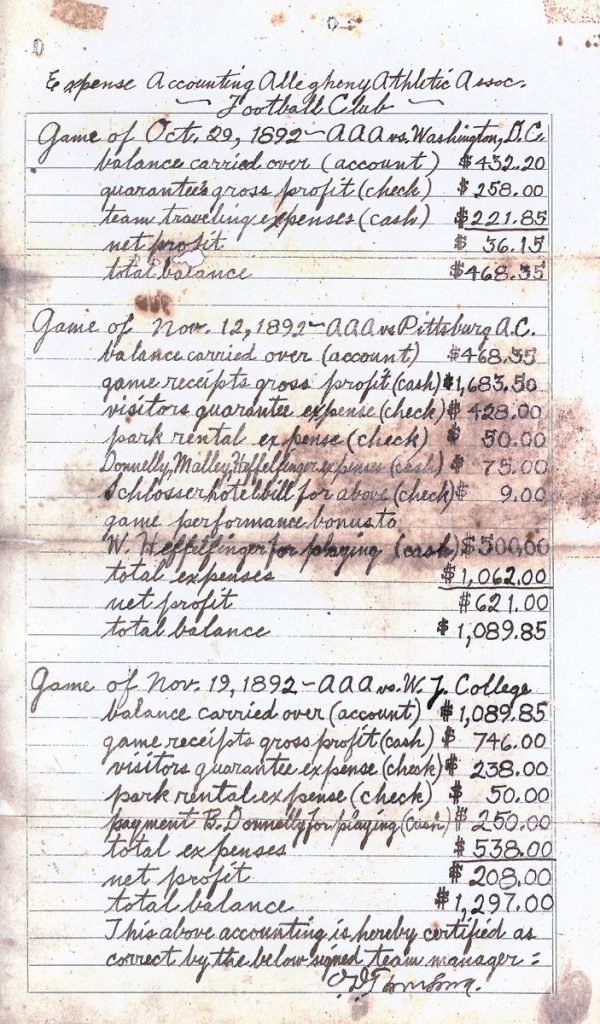 Expense Accounting Allegheny Athletic Assoc.
— Football Club —
Game of Oct. 29, 1892 – AAA vs. Washington, D.C.
balance carried over (account) $432.20
guarantee's gross profit (check) $258.00
team traveling expenses (cash) $221.85
net profit $36.15
total balance $468.35
Game of Nov. 12, 1892 – AAA vs Pittsburg A.C.
balance carried over (account) $468.35
game receipts gross profit (cash) $1,683.50
visitors guarantee expense (check) $428.00
park rental expense (check) $50.00
Donnelly, Malley, Heffelfinger expenses (cash) $75.00
Schlosser hotel bill for above (check) $9.00
game performance bonus to
W. Heffelfinger for playing (cash) $500.00
total expenses $1,062.00
net profit $621.00
total balance $1,089.85
Game of Nov. 19, 1892 – AAA vs. W. J. College
balance carried over (account) $1,089.85
game receipts gross profit (cash) $746.00
visitors guarantee expense (check) $238.00
park rental expense (check) $50.00
payment B. Donnelly for playing (cash) $250.00
total expenses $538.00
net profit $208.00
total balance $1,297.00
This above accounting is hereby certified as
correct by the below signed team manager :